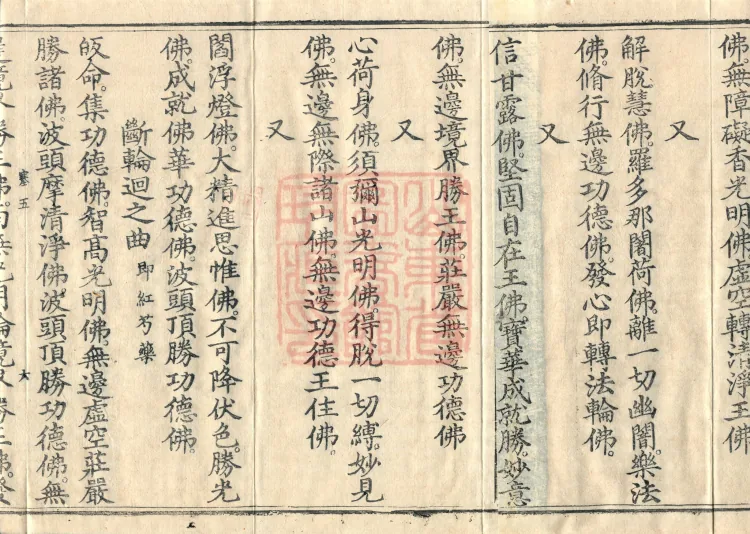 佛。無障礙香光明佛。虛空轉清淨王佛
又
解脫慧佛。羅多那闍荷佛。離一切幽闇。樂法
佛。脩行無邊功德佛。發心即轉法輪佛。
又
信甘露佛。堅固自在王佛。寶華成就勝。妙意
佛。無邊境界勝王佛。莊嚴無邊功德佛
又
心荷身佛。須彌山光明佛。得脫一切縛。妙見
佛。無邊無際諸山佛。無邊功德王住佛。
又
閻浮燈佛。大精進思惟佛。不可降伏色。勝光
佛。成就佛華功德佛。波頭頂勝功德佛。
斷輪迴之曲 即紅芍藥
皈命。集功德佛。智高光明佛。無邊虛空莊嚴
勝諸佛。波頭摩清淨佛。波頭頂勝功德佛。無
寒五
六